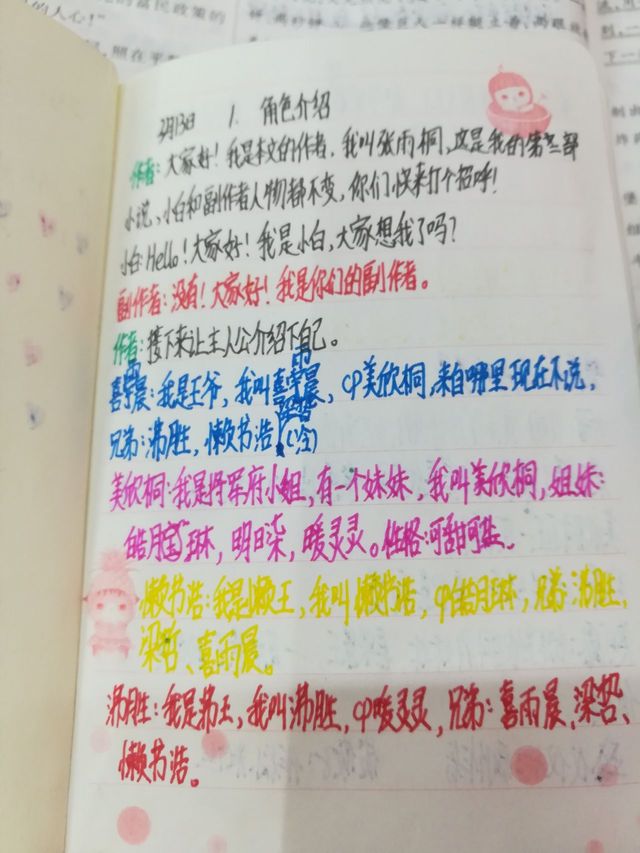 的人心!”
照在平
3月13日 1. 角色介绍
作者:大家好!我是本文的作者,我叫张雨桐,这是我的第三部
小说,小白和副作者人物都不变,你们快来打个招呼!
小白:Hello!大家好!我是小白,大家想我了吗?
副作者:没有!大家好!我是你们的副作者。
作者:接下来让主人公介绍下自己。
喜雨晨:我是王爷,我叫喜雨晨,cp美欣桐,来自哪里现在不说,
兄弟:沸胜,懒书浩,梁哲
美欣桐:我是将军府小姐,有一个妹妹,我叫美欣桐,姐妹:
皓月琳,明日柒,暖灵灵。性格:可甜可盐。
懒书浩:我是懒王,我叫懒书浩,cp皓月琳,兄弟:沸胜,
梁哲、喜雨晨。
沸胜:我是沸王,我叫沸胜,cp暖灵灵,兄弟:喜雨晨、梁哲、
懒书浩。